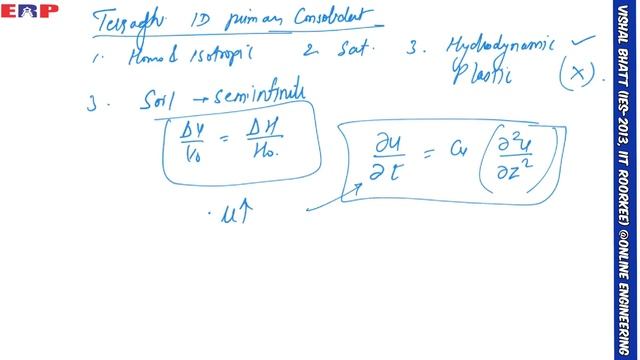 ERP
Terzaghi 1D primary Consolidat
1. Homo & Isotropic 2 Sat. 3. Hydrodynamic ✓
Plastic (X).
3. Soil → semi infinite
ΔV/V₀ = ΔH/H₀.
∂u/∂t = Cv (∂²u/∂z²)
. u↑
VISHAL BHATT (IES-2013, IIT ROORKEE) @ONLINE ENGINEERING